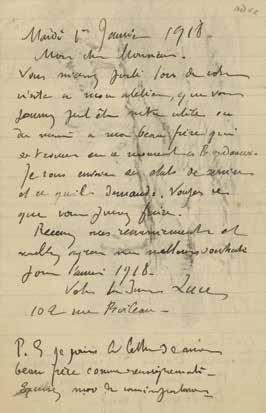 Mardi 1er Janvier 1918.
Mon cher Monsieur.
Vous m'aviez parlé lors de votre
visite à mon atelier, que vous
pourriez peut être être utile ou
à mon beau frère qui
en ce moment à Bordeaux.
Je vous envoie ses états de services
et ce qu'il demande. Voyez ce
que vous pouvez faire.
Recevez mes remerciements et
veuillez agréer mes meilleurs souhaits
pour l'année 1918.
Votre Luce
102 rue Boileau.
P.S je joins la lettre de mon
beau frère comme renseignements.